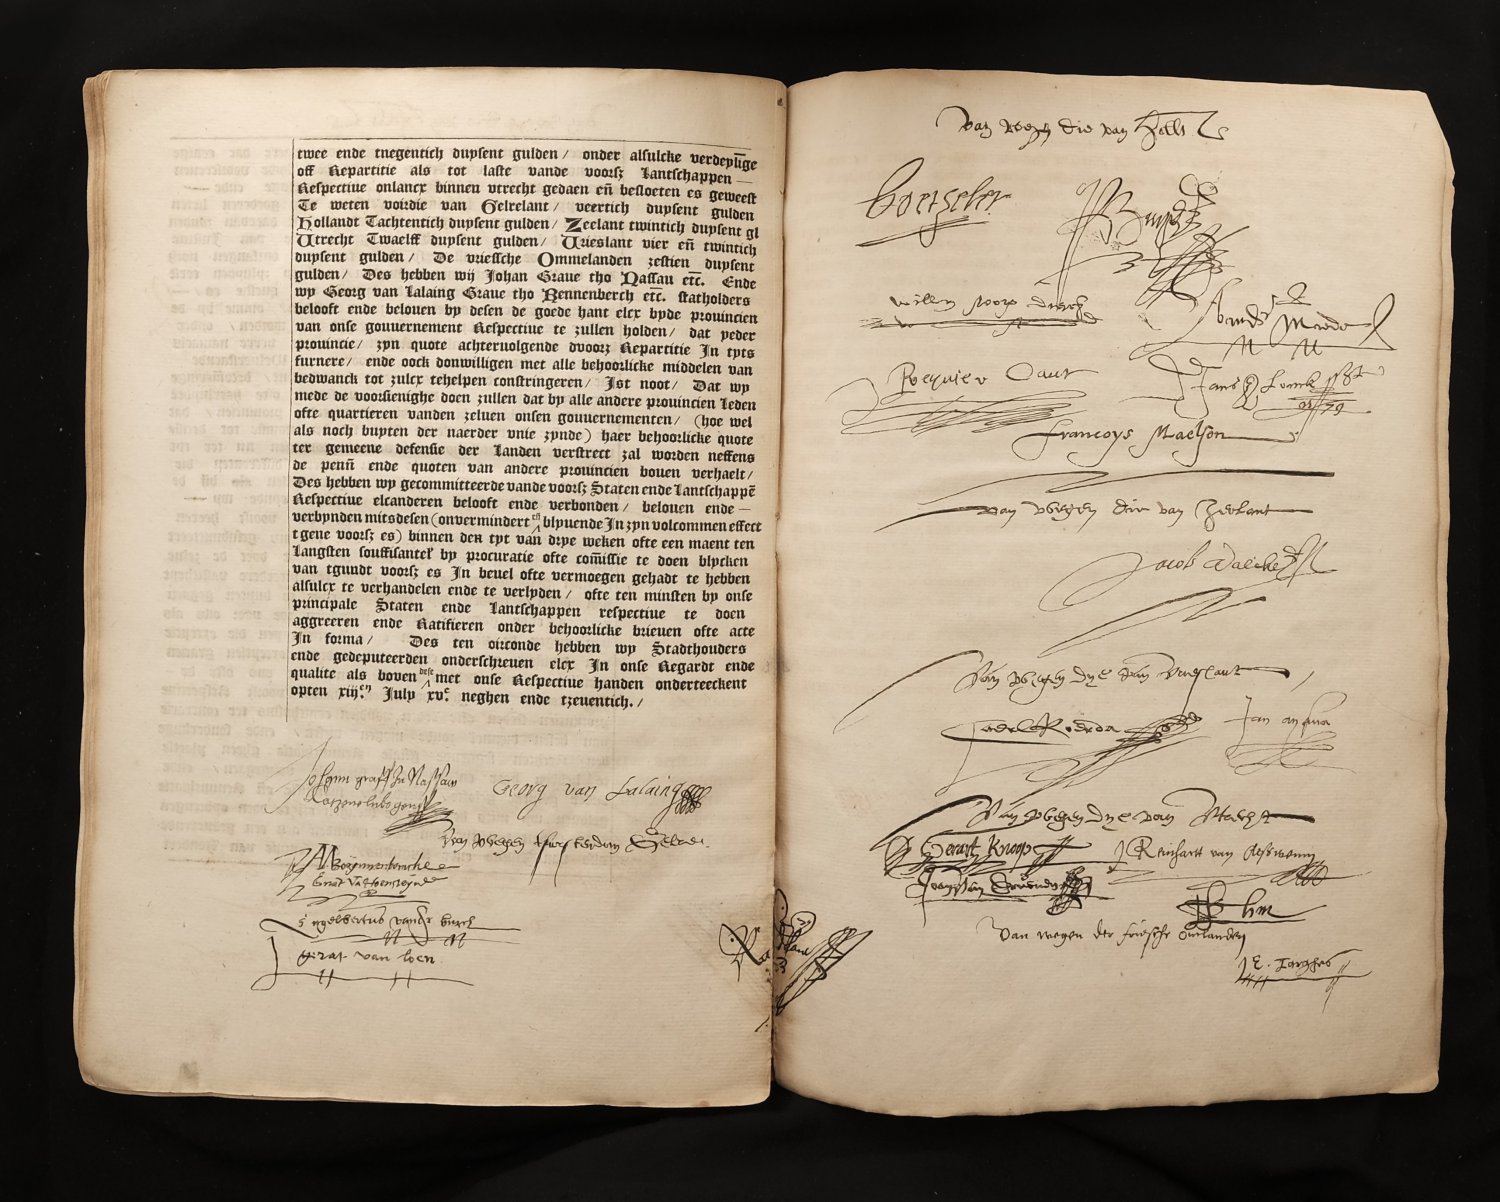 twee ende tnegentich duysent gulden / onder alsulcke verdeylīge
off Repartitie als tot laste vande voorsz Lantschappen —
Respectiue onlancx binnen vtrecht gedaen eñ besloeten es geweest
Te weten voirdie van Gelrelant / veertich duysent gulden
Hollandt Tachtentich duysent gulden / Zeelant twintich duysent gl
Utrecht Twaelff duysent gulden / Urieslant vier eñ twintich
duysent gulden / De vriessche Ommelanden zestien duysent
gulden / Des hebben wij Johan Graue tho Nassau etc. Ende
wy Georg van Lalaing Graue tho Rennenberch etc. statholders
belooft ende belouen by desen de goede hant elcx byde prouincien
van onse gouuernement Respectiue te zullen holden / dat yeder
prouincie / zyn quote achteruolgende dvoorz Repartitie In tyts
furnere / ende oock donwilligen met alle behoorlicke middelen van
bedwanck tot zulcx tehelpen constringeren / Ist noot / Dat wy
mede de voorsienighe doen zullen dat by alle andere prouincien Leden
ofte quartieren vanden zeluen onsen gouuernementen / (hoe wel
als noch buyten der naerder vnie zynde) haer behoorlicke quote
ter gemeene defensie der Landen verstrect zal worden neffens
de penñ ende quoten van andere prouincien bouen verhaelt /
Des hebben wy gecommitteerde vande voorsz Staten ende Lantschappē
Respectiue elcanderen belooft ende verbonden / belouen ende —
verbynden mitsdesen (onvermindert eñ blyuende In zyn volcommen effect
tgene voorsz es) binnen den tyt van drye weken ofte een maent ten
langsten souffisantel̃ by procuratie ofte com̃issie te doen blycken
van tgundt voorsz es In beuel ofte vermoegen gehadt te hebben
alsulcx te verhandelen ende te verlyden / ofte ten minsten by onse
principale Staten ende Lantschappen respectiue te doen
aggreeren ende Ratifieren onder behoorlicke brieuen ofte acte
In forma / Des ten oirconde hebben wy Stadthouders
ende gedeputeerden onderschreuen elcx In onse Regardt ende
qualite als boven dese met onse Respectiue handen onderteeckent
opten xiijen July xvc neghen ende tzeuentich. /
Johann graff zu Nassaw
Katzenelnbogen
Georg van Lalaing
Engelbertus vander burch
gerat van loen
van wegen die van Hollt
Boetzeler
willem
Francoys Maelson
van wegen die van Zeelant
Jacob Valcke
Van wegen dye van Vrieslant
Van wegen dye van Utrecht
Gerart Knoop
Reinhart van
van wegen der friessche Omlanden